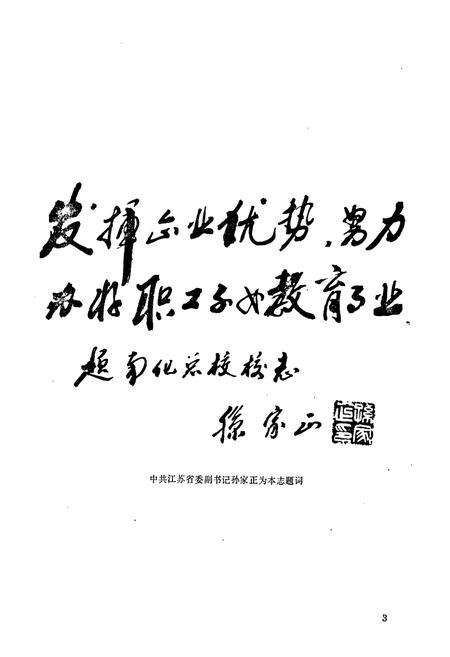 发挥企业优势，努力
办好职工子女教育事业
题南化总校校志
孙家正
孙家正印
中共江苏省委副书记孙家正为本志题词
3